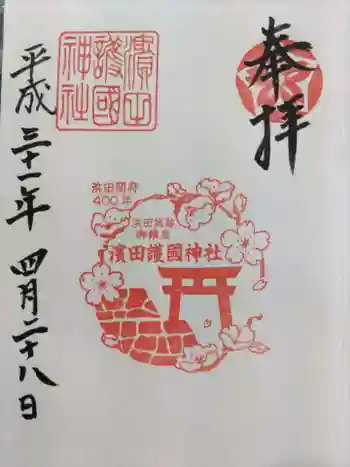 奉拝
濱田護國神社
浜田開府
400年
浜田城跡
御鎮座
濱田護國神社
平成三十一年 四月二十八日